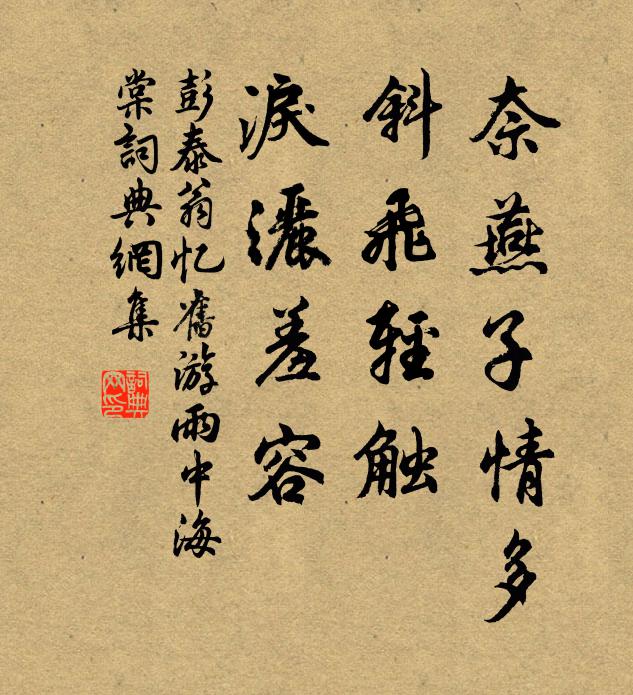 奈燕子情多
斜飛輕触
淚灑羞容
彭泰翁忆舊游雨中海
棠詞典網集
詞典
网印